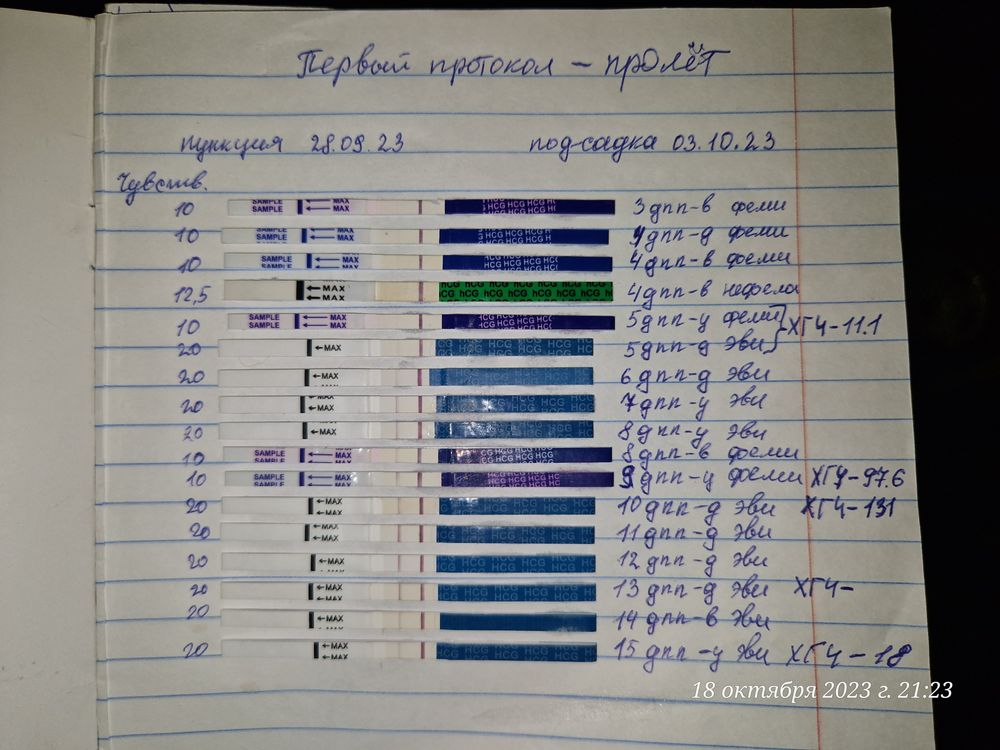 Первый протокол – пролёт
пункция 28.09.23 подсадка 03.10.23
Чувств.
10 SAMPLE SAMPLE MAX MAX HCG HCG HCG HCG 3 дпп-в феми
10 SAMPLE SAMPLE MAX MAX HCG HCG HCG 4 дпп-д феми
10 SAMPLE SAMPLE MAX MAX HCG HCG HCG 4 дпп-в феми
12,5 MAX MAX hCG hCG hCG hCG hCG 4 дпп-в нефела
10 SAMPLE SAMPLE MAX MAX HCG HCG HCG 5 дпп-у феми ХГЧ-11.1
20 MAX HCG HCG HCG HCG 5 дпп-д эви
20 MAX 6 дпп-д эви
20 MAX MAX 7 дпп-у эви
20 MAX 8 дпп-у эви
10 SAMPLE SAMPLE MAX MAX HCG HCG HCG 8 дпп-в феми
10 SAMPLE SAMPLE MAX MAX HCG HCG HCG HCG 9 дпп-у феми ХГЧ-97.6
20 MAX MAX HCG HCG HCG HCG 10 дпп-д эви ХГЧ-131
20 MAX MAX 11 дпп-д эви
20 MAX HCG HCG HCG HCG 12 дпп-д эви
20 MAX MAX HCG HCG HCG HCG 13 дпп-д эви ХГЧ-
20 MAX 14 дпп-в эви
20 MAX MAX HCG HCG HCG HCG 15 дпп-у эви ХГЧ-18
18 октября 2023 г. 21:23